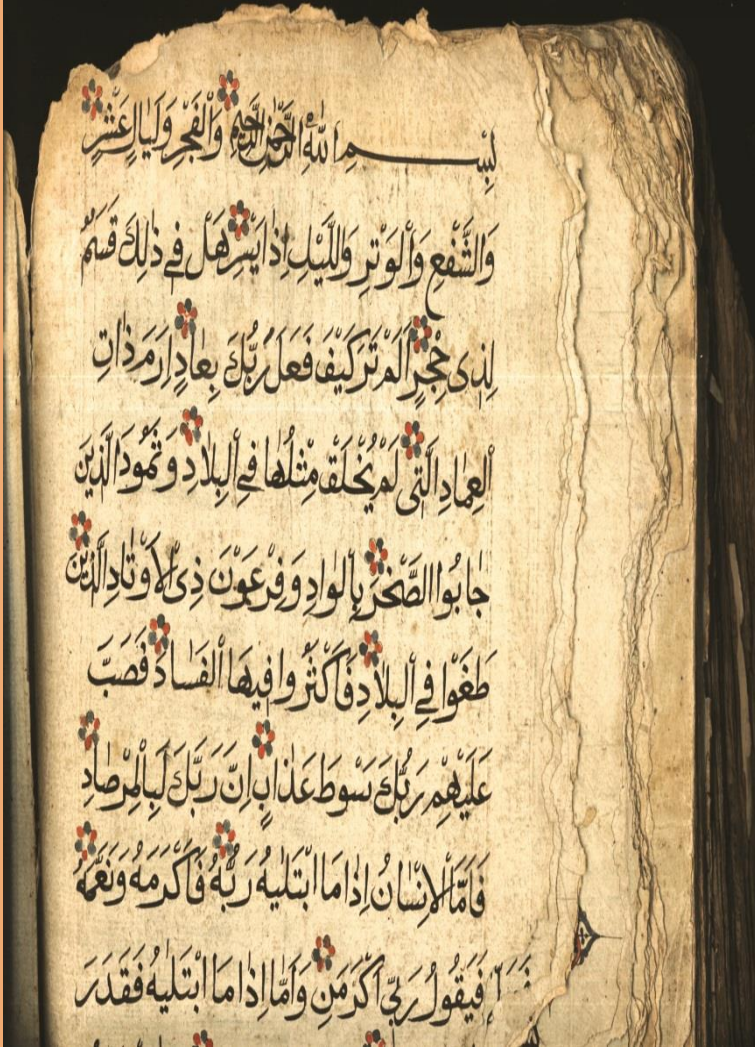 بِسْمِ اللّٰهِ الرَّحْمٰنِ الرَّحِيْمِ وَالْفَجْرِ وَلَيَالٍ عَشْرٍ
وَالشَّفْعِ وَالْوَتْرِ وَاللَّيْلِ اِذَا يَسْرِ هَلْ فِي ذٰلِكَ قَسَمٌ
لِذِى حِجْرٍ اَلَمْ تَرَ كَيْفَ فَعَلَ رَبُّكَ بِعَادٍ اِرَمَ ذَاتِ
الْعِمَادِ الَّتِى لَمْ يُخْلَقْ مِثْلُهَا فِي الْبِلَادِ وَثَمُودَ الَّذِينَ
جَابُوا الصَّخْرَ بِالْوَادِ وَفِرْعَوْنَ ذِى الْاَوْتَادِ الَّذِينَ
طَغَوْا فِي الْبِلَادِ فَاَكْثَرُوا فِيهَا الْفَسَادَ فَصَبَّ
عَلَيْهِمْ رَبُّكَ سَوْطَ عَذَابٍ اِنَّ رَبَّكَ لَبِالْمِرْصَادِ
فَاَمَّا الْاِنْسَانُ اِذَا مَا ابْتَلٰيهُ رَبُّهُ فَاَكْرَمَهُ وَنَعَّمَهُ
فَيَقُولُ رَبِّى اَكْرَمَنِ وَاَمَّا اِذَا مَا ابْتَلٰيهُ فَقَدَرَ